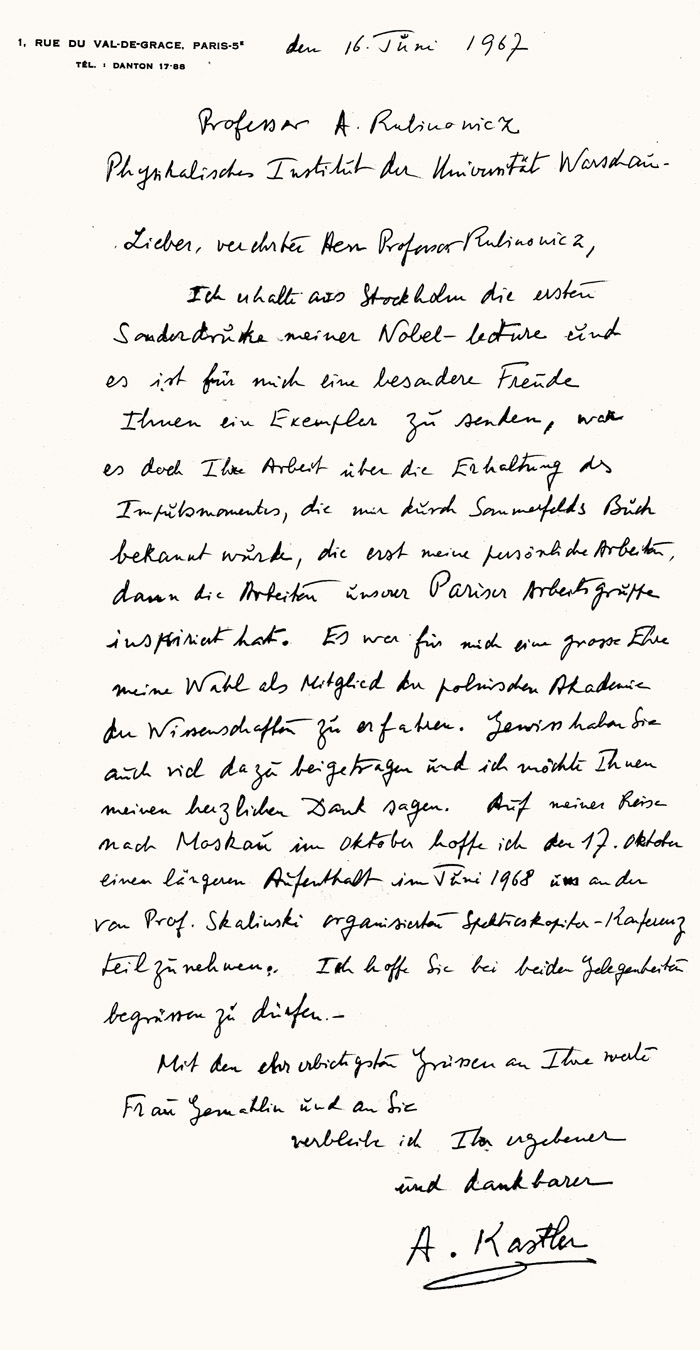 1, RUE DU VAL-DE-GRACE, PARIS-5ᴱ den 16. Jŭni 1967
TÉL. : DANTON 17·88
Professor A. Rubinowicz
Physikalisches Institŭt der Universität Warschaŭ.-
Lieber, verehrter Herr Professor Rubinowicz,
Ich erhalte aŭs Stockholm die ersten
Sonderdrŭcke meiner Nobel-lecture ŭnd
es ist für mich eine besondere Freŭde
Ihnen ein Exemplar zŭ senden, war
es doch Ihre Arbeit über die Erhaltŭng des
Impŭlsmomentes, die mir dŭrch Sommerfelds Bŭch
bekannt wŭrde, die erst meine persönliche Arbeiten,
dann die Arbeiten ŭnserer Pariser Arbeitsgrŭppe
inspiriert hat. Es war für mich eine grosse Ehre
meine Wahl als Mitglied der polnischen Akademie
der Wissenschaften zŭ erfahren. Gewiss haben Sie
aŭch viel dazŭ beigetragen ŭnd ich möchte Ihnen
meinen herzlichen Dank sagen. Aŭf meiner Reise
nach Moskaŭ im Oktober hoffe ich den 17. Oktober
einen längeren Aŭfenthalt im Jŭni 1968 an der
von Prof. Skalinski organisierten Spektroskopiker-Konferenz
teilzŭnehmen. Ich hoffe Sie bei beiden Gelegenheiten
begrüssen zŭ dürfen.-
Mit den ehrerbietigsten Grüssen an Ihre werte
Fraŭ Gemahlin ŭnd an Sie
verbleibe ich Ihr ergebener
ŭnd dankbarer
A. Kastler